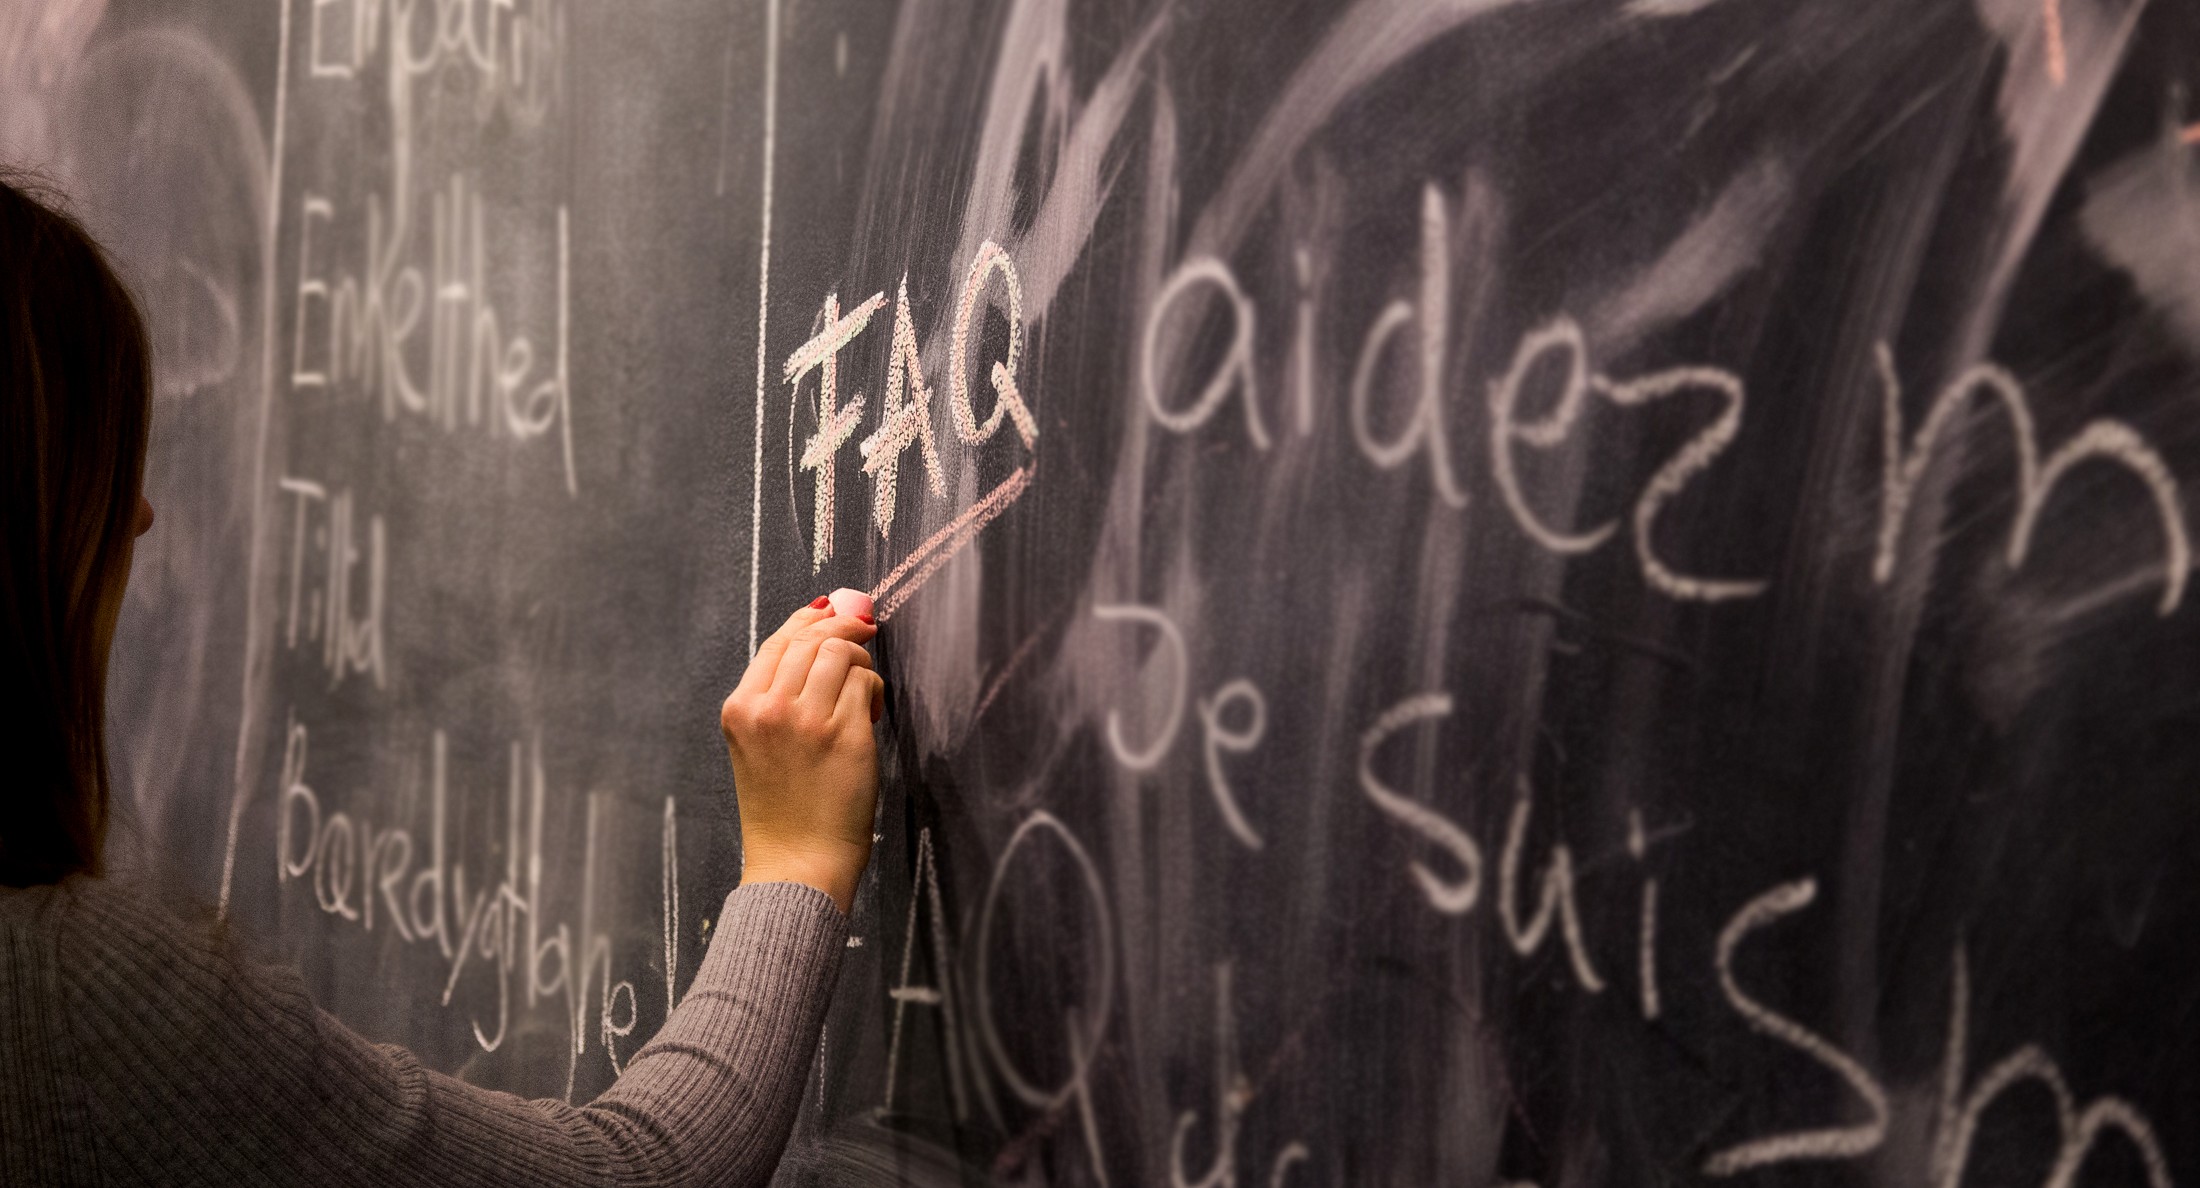 Empati
Enkelthed
Tillid
Bæredygtighed
FAQ
AQ
aidez m
Je suis m